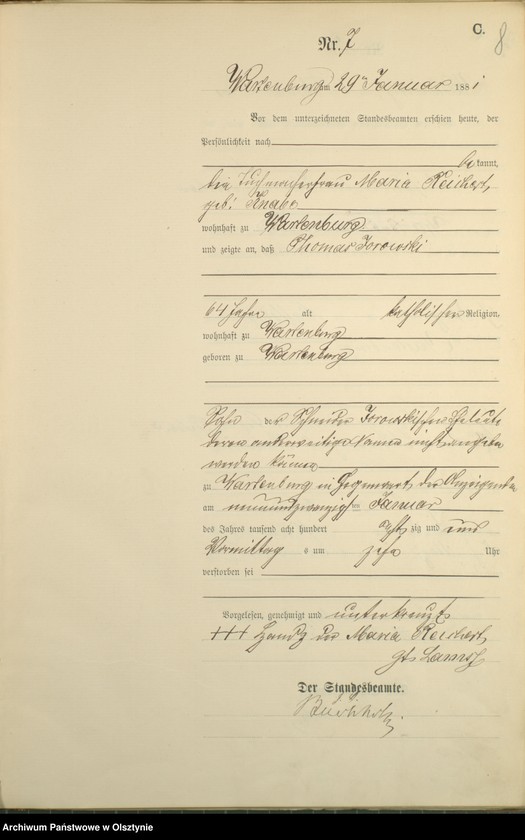 C.
8
Nr. 7
Wartenburg am 29ten Januar 1881
Vor dem unterzeichneten Standesbeamten erschien heute, der
Persönlichkeit nach
bekannt,
die Tuchmacherfrau Maria Reichert,
geb. Knabe
wohnhaft zu Wartenburg
und zeigte an, daß Thomas Jorowski
64 Jahre alt katholischen Religion,
wohnhaft zu Wartenburg
geboren zu Wartenburg
Sohn der Schneider Jorowskischen Eheleute
deren anderweitige Namen nicht angegeben
werden können
zu Wartenburg in Gegenwart der Anzeigenden
am neunundzwanzigsten Januar
des Jahres tausend acht hundert achtzig und eins
Vormittags um zehn Uhr
verstorben sei
Vorgelesen, genehmigt und unterkreuzt
+++ Handz. der Maria Reichert,
geb.
Der Standesbeamte.
Buchholz.
Archiwum Państwowe w Olsztynie